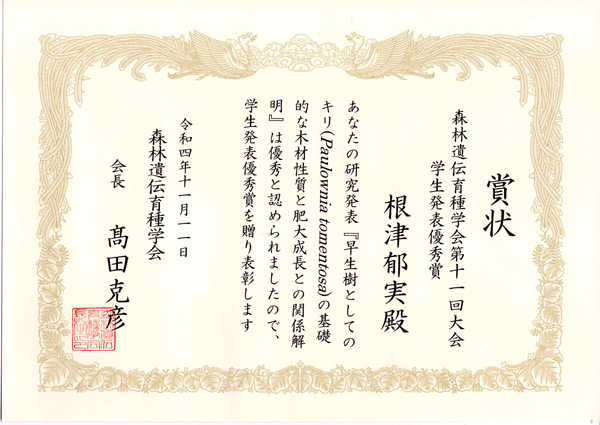 賞状
森林遺伝育種学会第十一回大会
学生発表優秀賞
根津郁実殿
あなたの研究発表『早生樹としての
キリ(Paulownia tomentosa)の基礎
的な木材性質と肥大成長との関係解
明』は優秀と認められましたので、
学生発表優秀賞を贈り表彰します
令和四年十一月一一日
森林遺伝育種学会
会長 髙田克彦